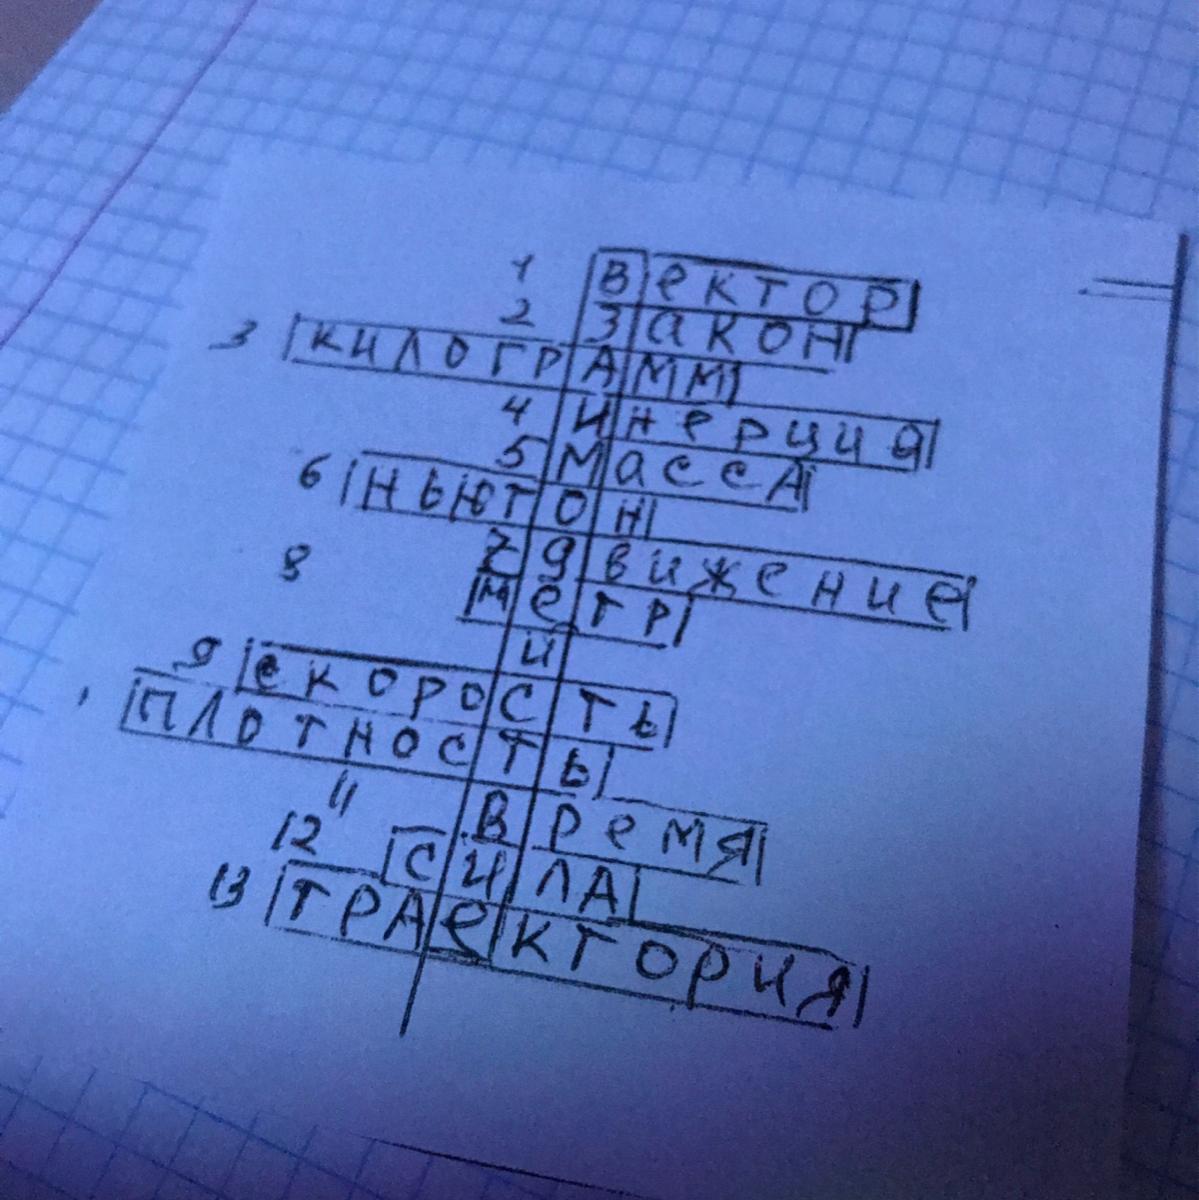 1 вектор
2 закон
3 килограмм
4 инерция
5 масса
6 ньютон
7 движение
8 метр
и
9 скорость
1 плотность
11 время
12 сила
13 траектория